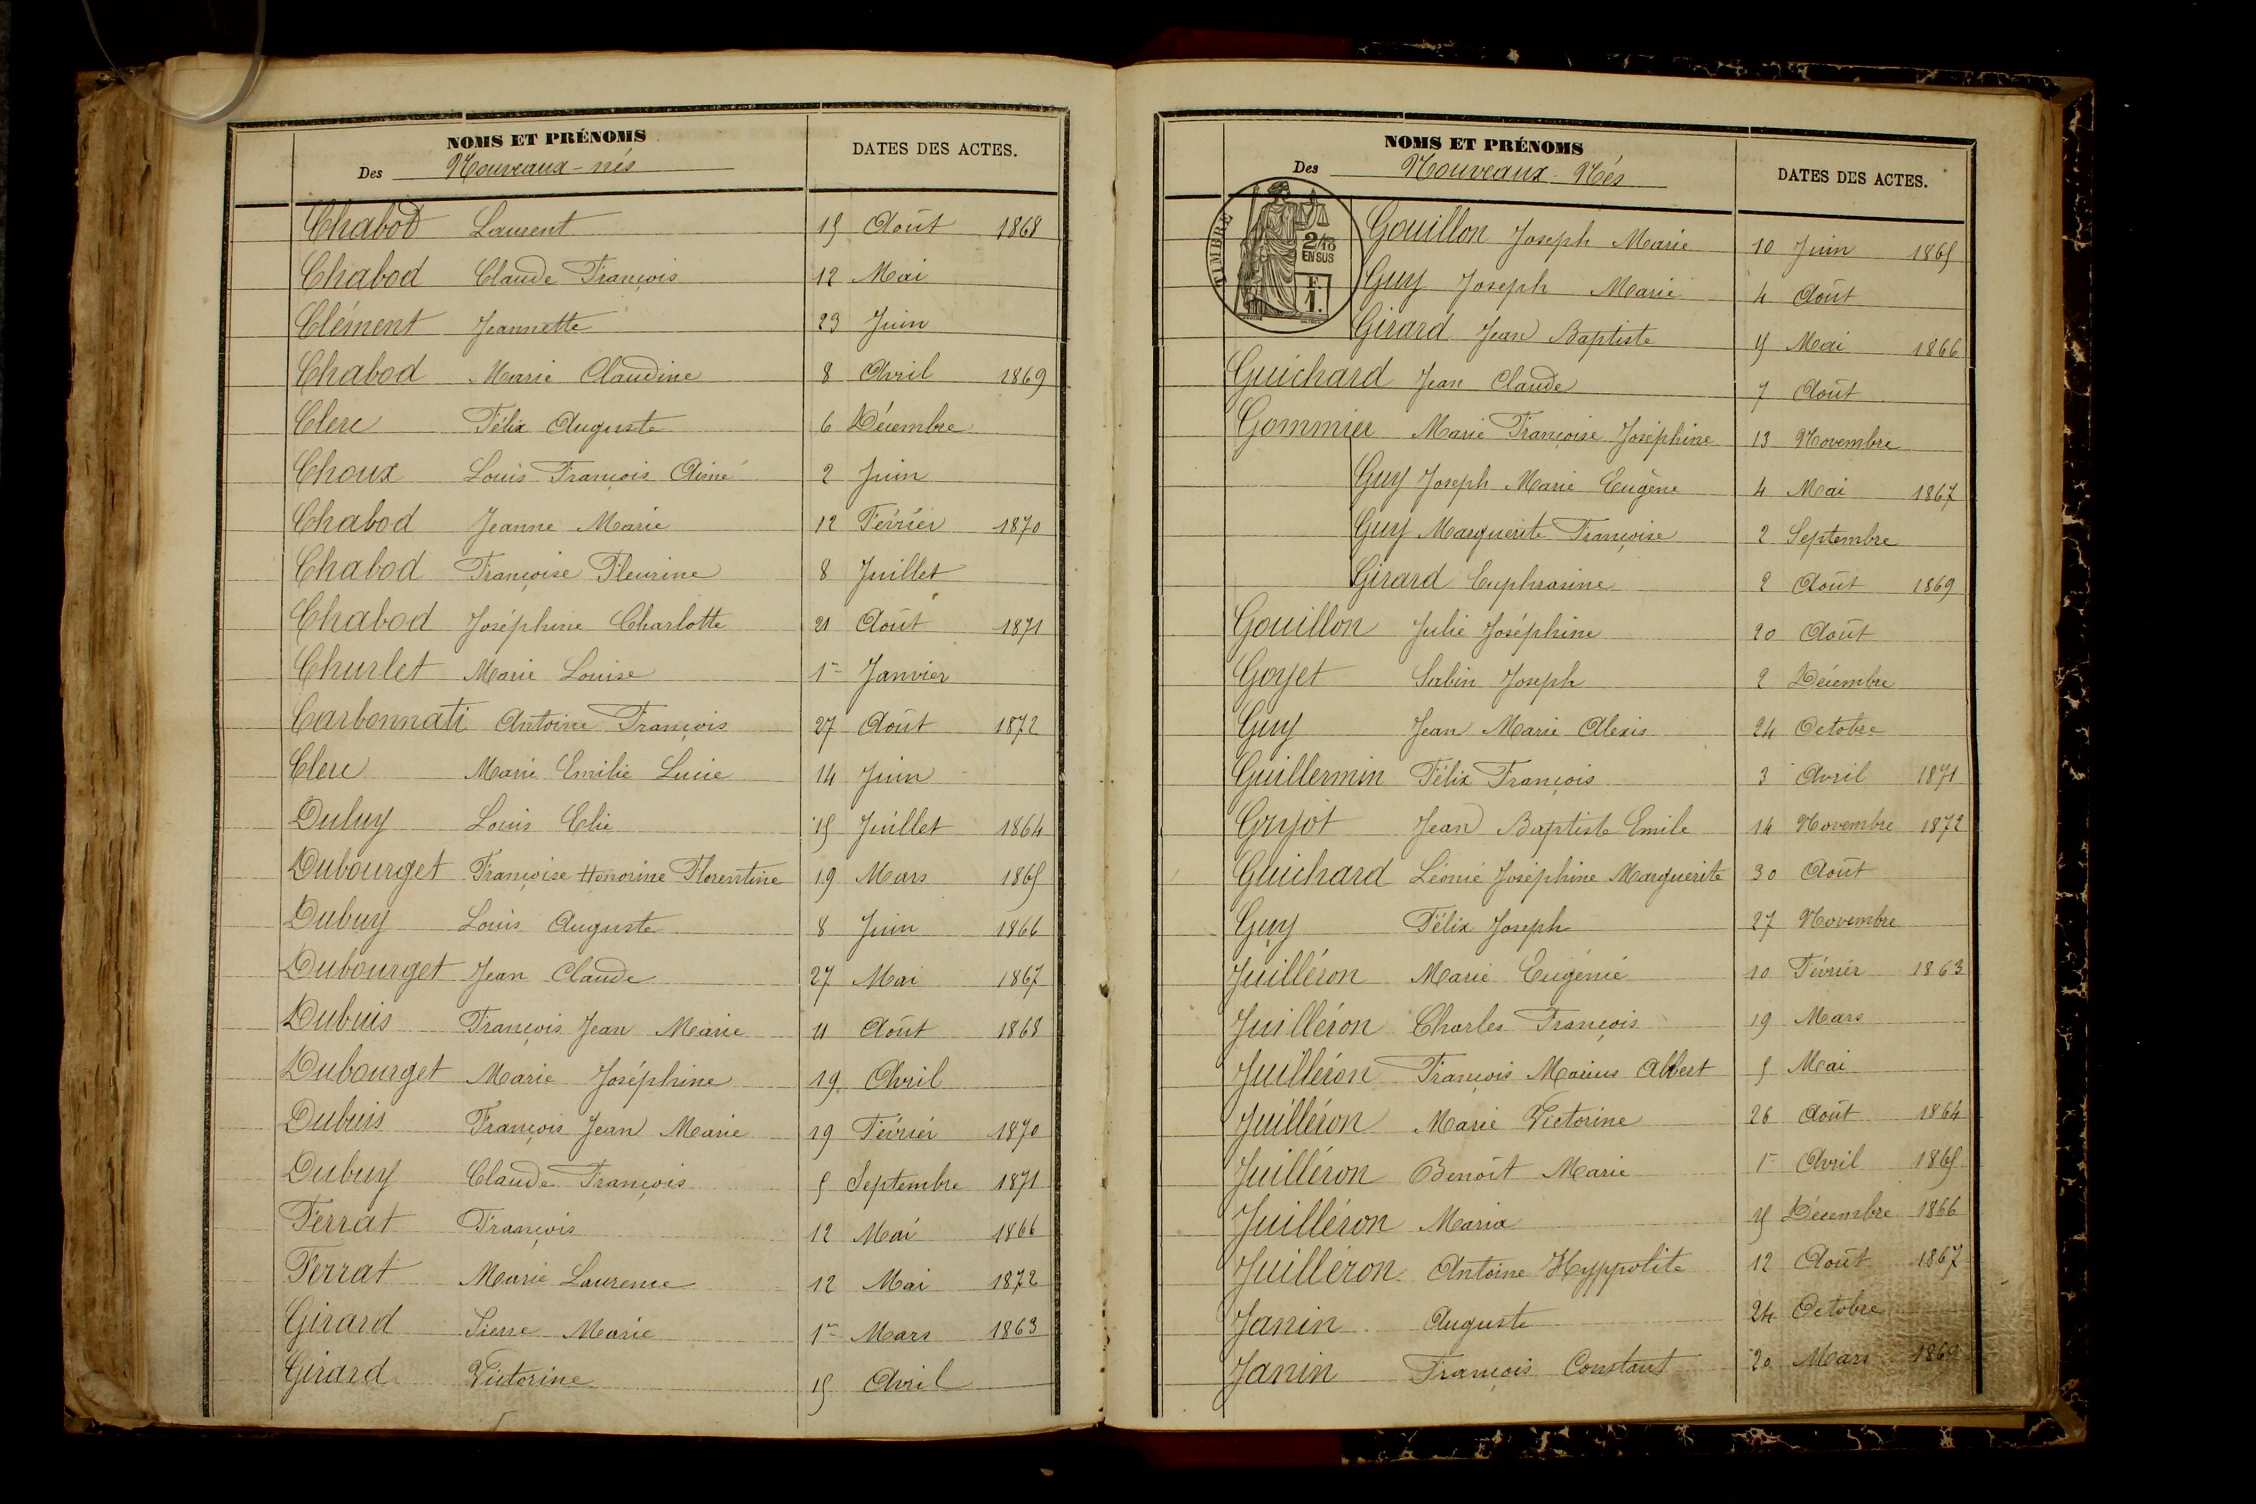 NOMS ET PRÉNOMS
Des Nouveaux-nés
DATES DES ACTES.
Chabod Laurent 15 Août 1868
Chabod Claude François 12 Mai
Clément Jeannette 23 Juin
Chabod Marie Claudine 8 Avril 1869
Clerc Félix Auguste 6 Décembre
Choux Louis François Aimé 2 Juin
Chabod Jeanne Marie 12 Février 1870
Chabod Françoise Fleurine 8 Juillet
Chabod Joséphine Charlotte 21 Août 1871
Churlet Marie Louise 1er Janvier
Carbonnati Antoine François 27 Août 1872
Clerc Marie Emilie Lucie 14 Juin
Dubuy Louis Elie 15 Juillet 1864
Dubourget Françoise Honorine Florentine 19 Mars 1865
Dubuy Louis Auguste 8 Juin 1866
Dubourget Jean Claude 27 Mai 1867
Dubuis François Jean Marie 11 Août 1868
Dubourget Marie Joséphine 19 Avril
Dubuis François Jean Marie 19 Février 1870
Dubuy Claude François 5 Septembre 1871
Ferrat François 12 Mai 1866
Ferrat Marie Laurence 12 Mai 1872
Girard Pierre Marie 1er Mars 1863
Girard Victorine 15 Avril
NOMS ET PRÉNOMS
Des Nouveaux-Nés
DATES DES ACTES.
TIMBRE
2/10
EN SUS
F.
1.
Gouillon Joseph Marie 10 Juin 1865
Guy Joseph Marie 4 Août
Girard Jean Baptiste 15 Mai 1866
Guichard Jean Claude 7 Août
Gommier Marie Françoise Joséphine 13 Novembre
Guy Joseph Marie Eugène 4 Mai 1867
Guy Marguerite Françoise 2 Septembre
Girard Euphrosine 2 Août 1869
Gouillon Julie Joséphine 20 Août
Goyet Sabin Joseph 2 Décembre
Guy Jean Marie Alexis 24 Octobre
Guillermin Félix François 3 Avril 1871
Guyot Jean Baptiste Emile 14 Novembre 1872
Guichard Léonie Joséphine Marguerite 30 Août
Guy Félix Joseph 27 Novembre
Juilléron Marie Eugénie 10 Février 1863
Juilléron Charles François 19 Mars
Juilléron François Marius Albert 5 Mai
Juilléron Marie Victorine 26 Août 1864
Juilléron Benoît Marie 1er Avril 1865
Juilléron Maria 15 Décembre 1866
Juilléron Antoine Hyppolite 12 Août 1867
Janin Auguste 24 Octobre
Janin François Constant 20 Mars